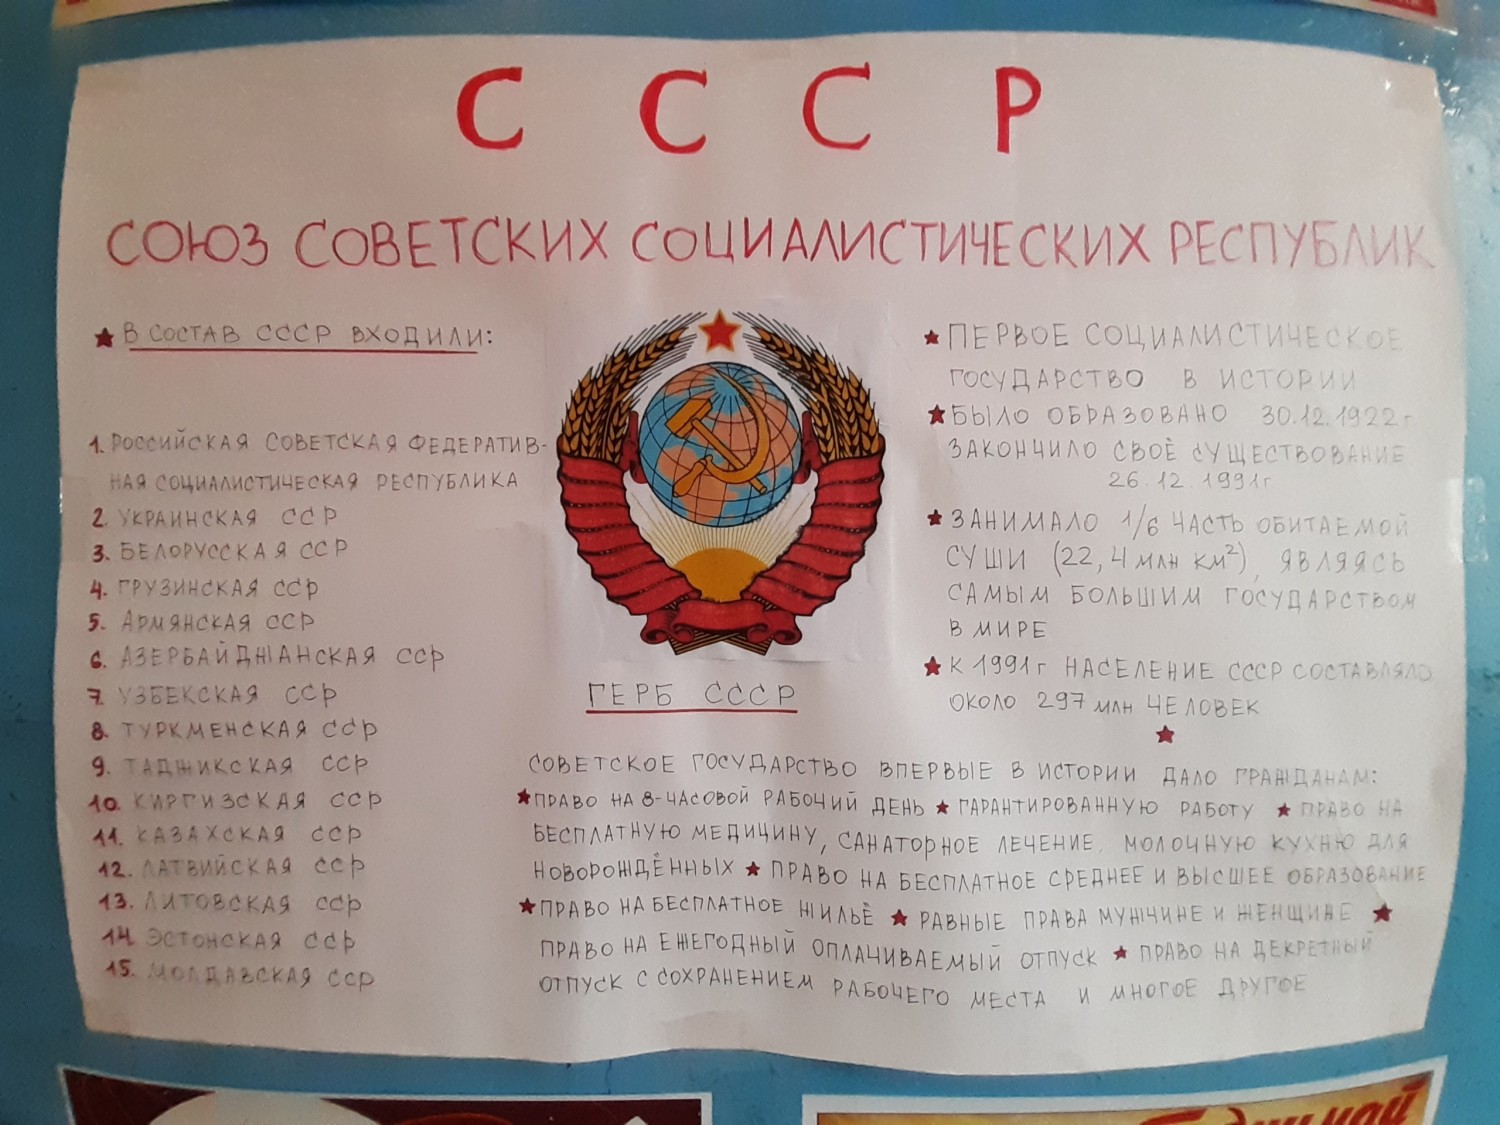 С С С Р
СОЮЗ СОВЕТСКИХ СОЦИАЛИСТИЧЕСКИХ РЕСПУБЛИК
★ В СОСТАВ СССР ВХОДИЛИ:
1. РОССИЙСКАЯ СОВЕТСКАЯ ФЕДЕРАТИВ-
НАЯ СОЦИАЛИСТИЧЕСКАЯ РЕСПУБЛИКА
2. УКРАИНСКАЯ ССР
3. БЕЛОРУССКАЯ ССР
4. ГРУЗИНСКАЯ ССР
5. АРМЯНСКАЯ ССР
6. АЗЕРБАЙДЖАНСКАЯ ССР
7. УЗБЕКСКАЯ ССР
8. ТУРКМЕНСКАЯ ССР
9. ТАДЖИКСКАЯ ССР
10. КИРГИЗСКАЯ ССР
11. КАЗАХСКАЯ ССР
12. ЛАТВИЙСКАЯ ССР
13. ЛИТОВСКАЯ ССР
14 ЭСТОНСКАЯ ССР
15. МОЛДАВСКАЯ ССР
ГЕРБ СССР
★ ПЕРВОЕ СОЦИАЛИСТИЧЕСКОЕ
ГОСУДАРСТВО В ИСТОРИИ
★ БЫЛО ОБРАЗОВАНО 30.12.1922г.
ЗАКОНЧИЛО СВОЁ СУЩЕСТВОВАНИЕ
26.12.1991г.
★ ЗАНИМАЛО 1/6 ЧАСТЬ ОБИТАЕМОЙ
СУШИ (22,4 млн км²), ЯВЛЯЯСЬ
САМЫМ БОЛЬШИМ ГОСУДАРСТВОМ
В МИРЕ
★ К 1991г НАСЕЛЕНИЕ СССР СОСТАВЛЯЛО
ОКОЛО 297 млн ЧЕЛОВЕК
★
СОВЕТСКОЕ ГОСУДАРСТВО ВПЕРВЫЕ В ИСТОРИИ ДАЛО ГРАЖДАНАМ:
★ ПРАВО НА 8-ЧАСОВОЙ РАБОЧИЙ ДЕНЬ ★ ГАРАНТИРОВАННУЮ РАБОТУ ★ ПРАВО НА
БЕСПЛАТНУЮ МЕДИЦИНУ, САНАТОРНОЕ ЛЕЧЕНИЕ, МОЛОЧНУЮ КУХНЮ ДЛЯ
НОВОРОЖДЁННЫХ ★ ПРАВО НА БЕСПЛАТНОЕ СРЕДНЕЕ И ВЫСШЕЕ ОБРАЗОВАНИЕ
★ ПРАВО НА БЕСПЛАТНОЕ ЖИЛЬЁ ★ РАВНЫЕ ПРАВА МУЖЧИНЕ И ЖЕНЩИНЕ ★
ПРАВО НА ЕЖЕГОДНЫЙ ОПЛАЧИВАЕМЫЙ ОТПУСК ★ ПРАВО НА ДЕКРЕТНЫЙ
ОТПУСК С СОХРАНЕНИЕМ РАБОЧЕГО МЕСТА И МНОГОЕ ДРУГОЕ